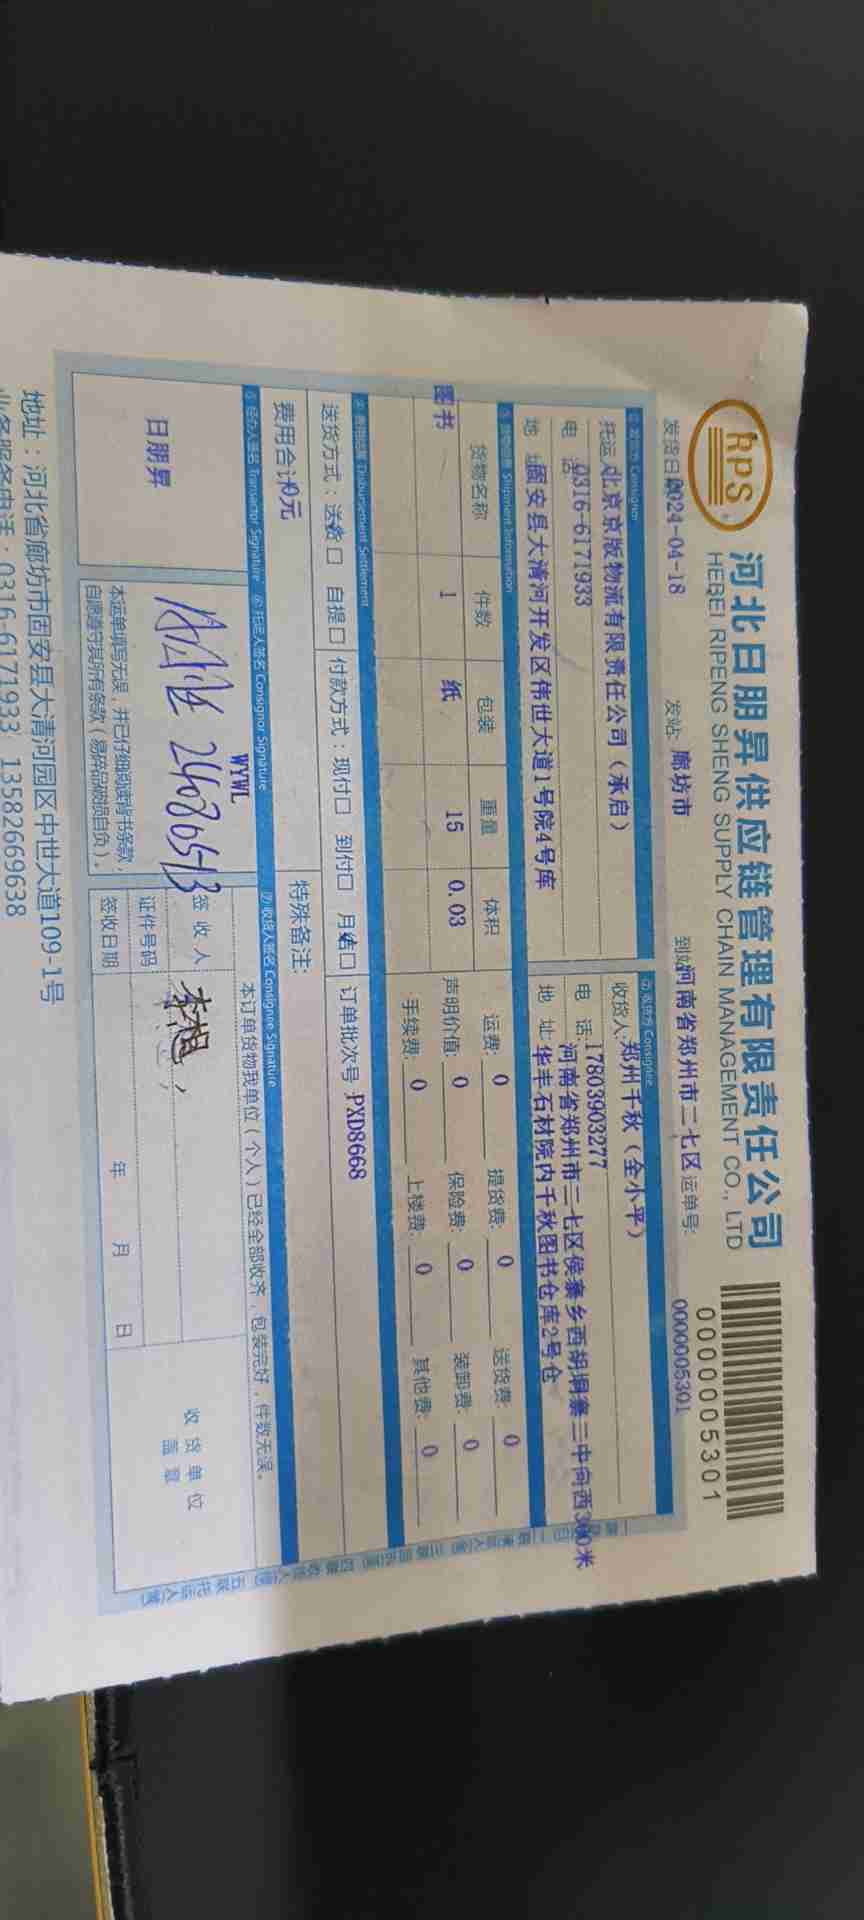 RPS
河北日朋昇供应链管理有限责任公司
HEBEI RIPENG SHENG SUPPLY CHAIN MANAGEMENT CO., LTD
0000005301
发货日期 2024-04-18 发站: 廊坊市 到站 河南省郑州市二七区 运单号: 0000005301
① 发货方 Consignor
托运人 北京京版物流有限责任公司（承启）
电 话 0316-6171933
地 址 固安县大清河开发区伟世大道1号院4号库
② 收货方 Consignee
收货人: 郑州千秋（全小平）
电 话: 17803903277
地 址: 河南省郑州市二七区侯寨乡西胡垌寨三中向西300米
华丰石材院内千秋图书仓库2号仓
③ 货物信息 Shipment Information
货物名称 件数 包装 重量 体积
图书 1 纸 15 0.03
运费: 0 提货费: 0 送货费: 0
声明价值: 0 保险费: 0 装卸费: 0
手续费: 0 上楼费: 0 其他费: 0
④ 费用结算 Disbursement Settlement
送货方式：送货 自提 付款方式：现付 到付 月结 订单批次号: PXD8668
费用合计: 0元 特殊备注:
⑤ 经办人签名 Transactor Signature ⑥ 托运人签名 Consignor Signature ⑦ 收货人签名 Consignee Signature
日朋昇
WYWL
本运单填写无误，并已仔细阅读背书条款，
自愿遵守其所有条款（易碎品破损自负）。
本订单货物我单位（个人）已经全部收齐，包装完好，件数无误。
签 收 人
证件号码
签收日期 年 月 日
收货单位
盖章
地址：河北省廊坊市固安县大清河园区中世大道109-1号
业务服务电话：0316-6171933 13582669638